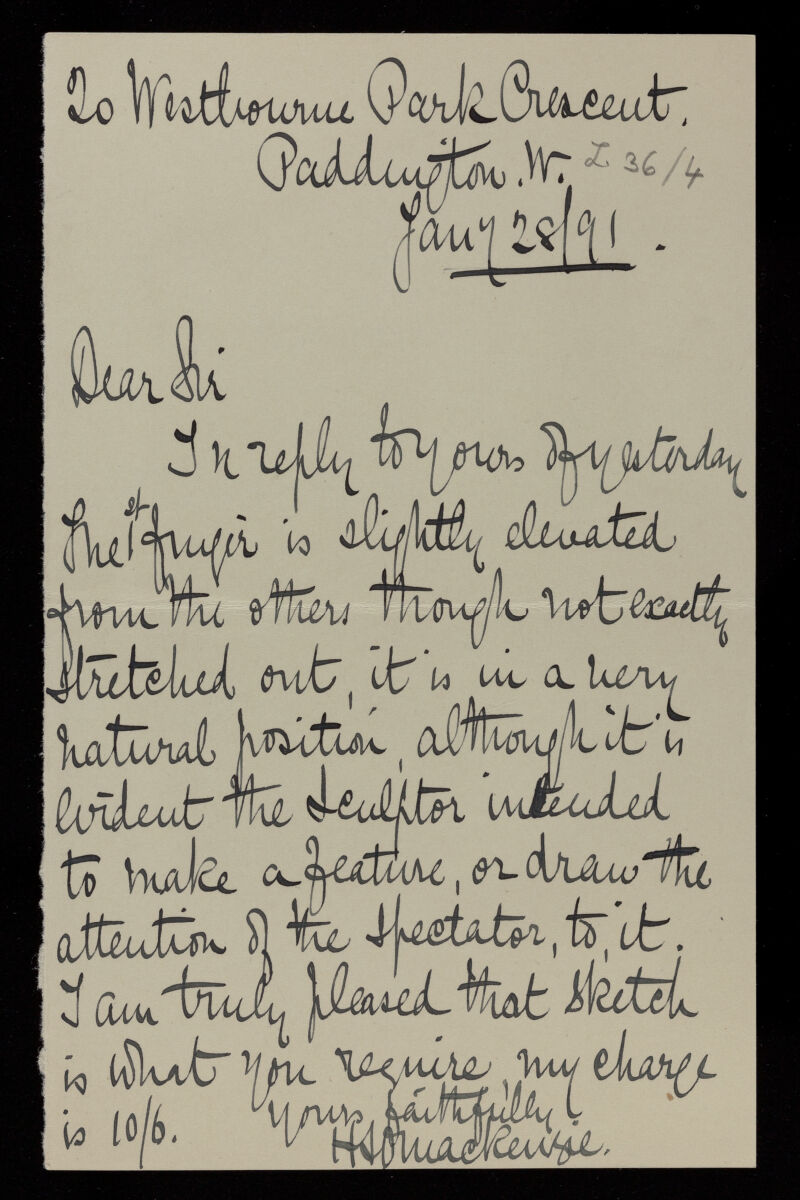 20 Westbourne Park Crescent.
Paddington. W.
L 36/4
Jany 28/91.
Dear Sir
In reply to yours of yesterday
The 1st finger is slightly elevated
from the others though not exactly
stretched out, it is in a very
natural position, although it is
evident the sculptor intended
to make a feature, or draw the
attention of the spectator, to, it.
I am truly pleased that sketch
is what you require, my charge
is 10/6.
Yours faithfully
Mackenzie.